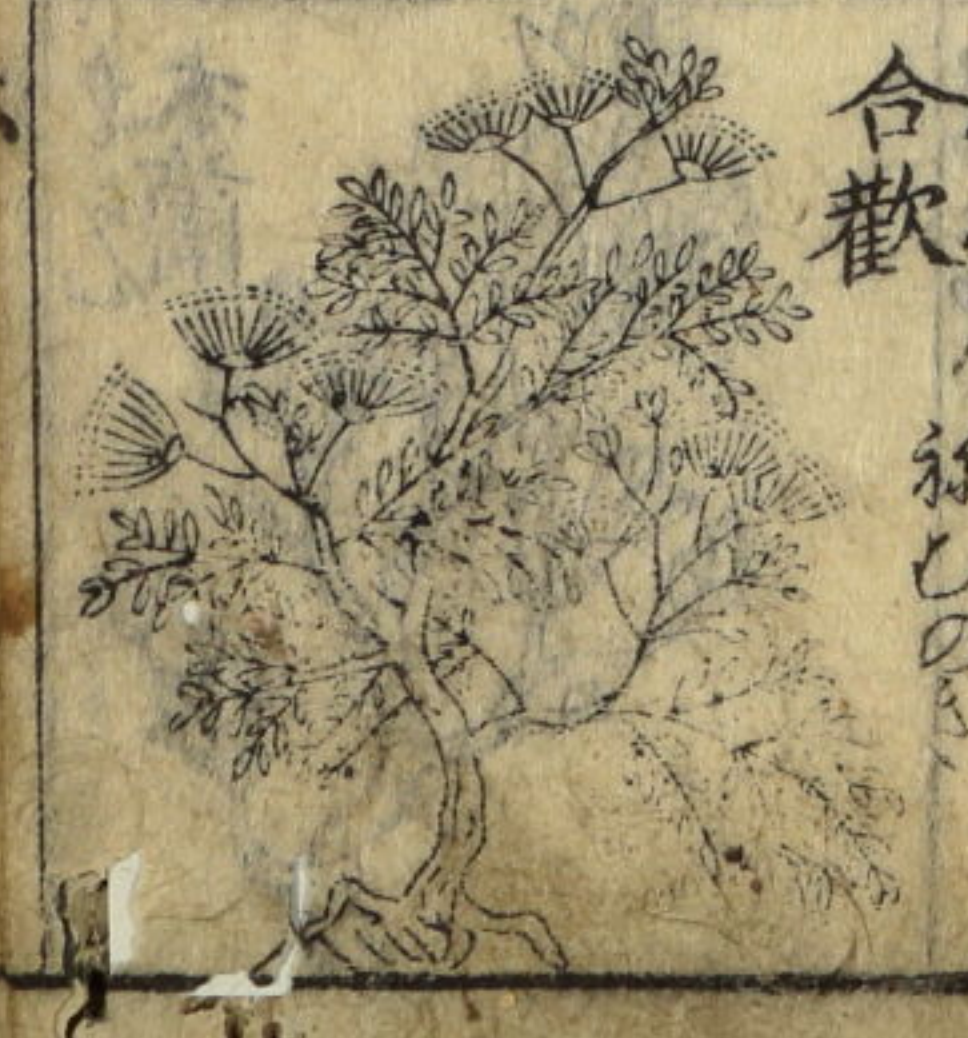 合歡
ねむのき